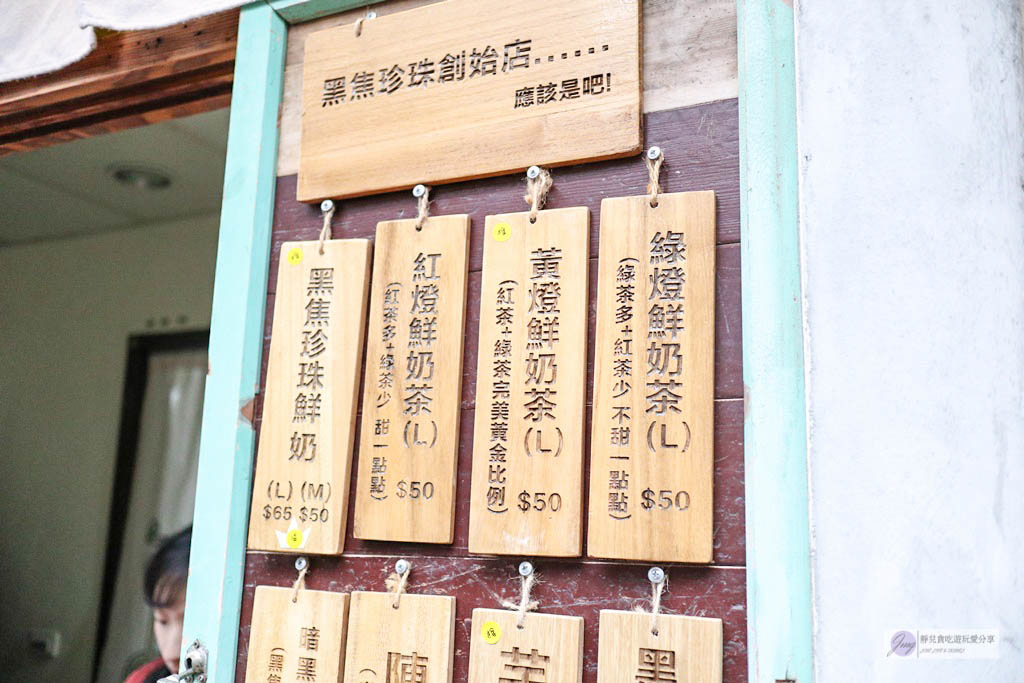 黑焦珍珠創始店......
應該是吧!
黑焦珍珠鮮奶
(L) (M)
$65 $50
紅燈鮮奶茶(L)
(紅茶多+綠茶少 甜一點點)
$50
黃燈鮮奶茶(L)
(紅茶+綠茶完美黃金比例)
$50
綠燈鮮奶茶(L)
(綠茶多+紅茶少 不甜一點點)
$50
暗黑
(黑
陳
黑
靜兒貪吃遊玩愛分享